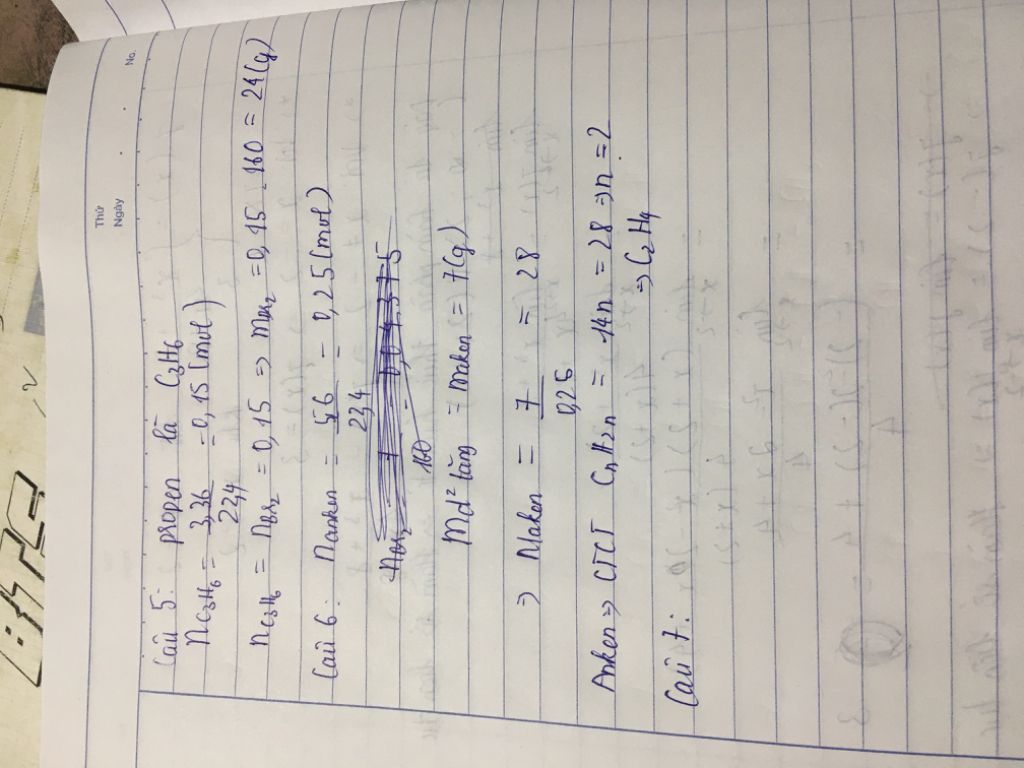 No.
Thứ
Ngày
Câu 5: propen là C3H6
nC3H6 = 3,36/22,4 = 0,15 (mol)
nC3H6 = nBr2 = 0,15 => mBr2 = 0,15 . 160 = 24(g)
Câu 6: nanken = 5,6/22,4 = 0,25 (mol)
md² tăng = maken = 7(g)
=> Maken = 7/0,25 = 28
Anken => CTCT CnH2n = 14n = 28 => n = 2
=> C2H4
Câu 7: